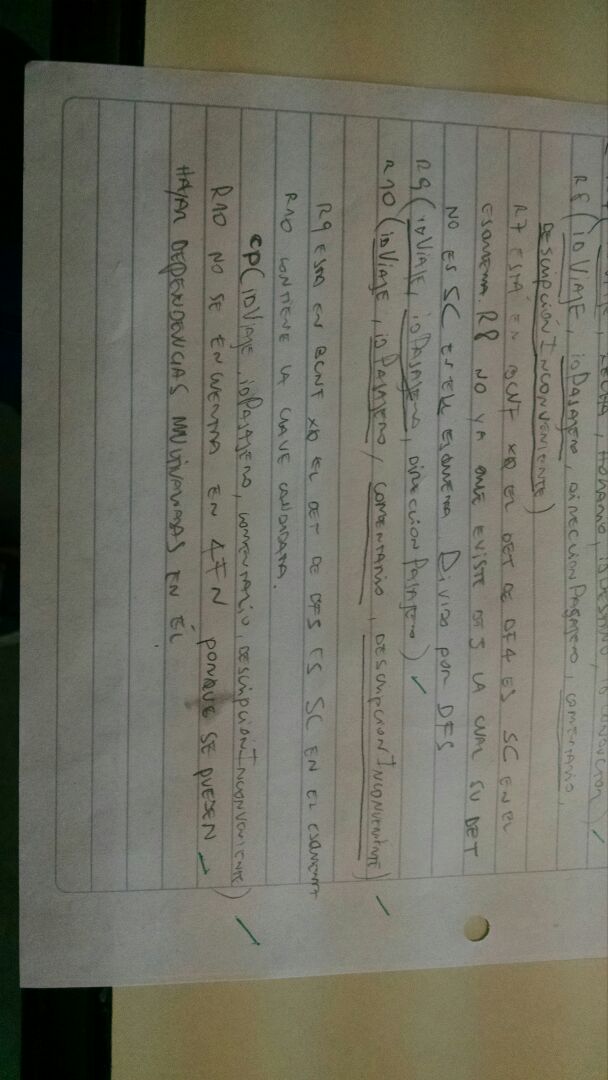 FECHA, HORARIO, IDDESTINO, IDCONDUCTOR)
R8 (IDVIAJE, IDPASAJERO, DIRECCIONPASAJERO, COMENTARIO,
DESCRIPCIÓNINCONVENIENTE)
R7 ESTÁ EN BCNF XQ EL DET DE DF4 ES SC EN EL
ESQUEMA. R8 NO YA QUE EXISTE DF5 LA CUAL SU DET
NO ES SC EN EL ESQUEMA. DIVIDO POR DF5
R9 (IDVIAJE, IDPASAJERO, DIRECCIONPASAJERO)
R10 (IDVIAJE, IDPASAJERO, COMENTARIO, DESCRIPCIONINCONVENIENTE)
R9 ESTA EN BCNF XQ EL DET DE DF5 ES SC EN EL ESQUEMA
R10 CONTIENE LA CLAVE CANDIDATA.
CP (IDVIAJE, IDPASAJERO, COMENTARIO, DESCRIPCIONINCONVENIENTE)
R10 NO SE ENCUENTRA EN 4FN PORQUE SE PUEDEN
HAYAR DEPENDENCIAS MULTIVALUADAS EN ÉL.